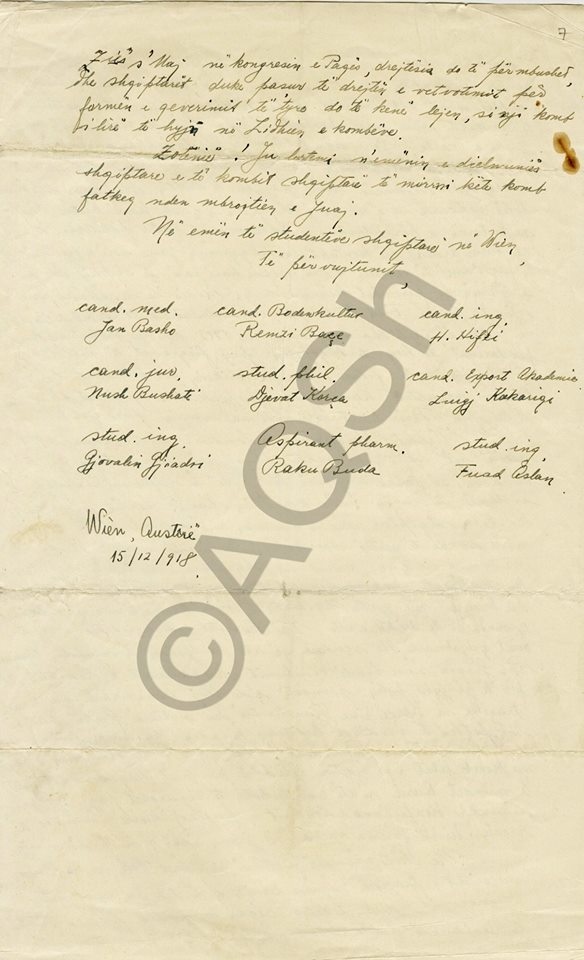 7
Ziës s' Uaj në kongresin e Pages, drejtësia do të përmbushet,
dhe shqiptarët duke pasur të drejtën e vetvotimit për
formën e geverimit të tyre do të kenë lejen, si një komb
i lirë të hyjn në Lidhien e kombëve.
Zotënië! Ju lutemi n'emënin e dielmunisë
shqiptare e të kombit shqiptarë të mirrni këte komb
fatkeq nden mbrojtien e Juaj.
Në emën të studentëve shqiptarë në Wien,
Të përvujtunit,
cand. med. cand. Bodenkultur cand. ing.
Jan Basho Remzi Baçe H.
cand. jur. stud. phil. cand. Export Akademie
Nush Bushati Djevat Korça Luigj Kakariqi
stud. ing. Aspirant pharm. stud. ing.
Gjovalin Gjoadri Raku Buda Fuad Aslan
Wien, Austrië
15/12/918.
©AQSh